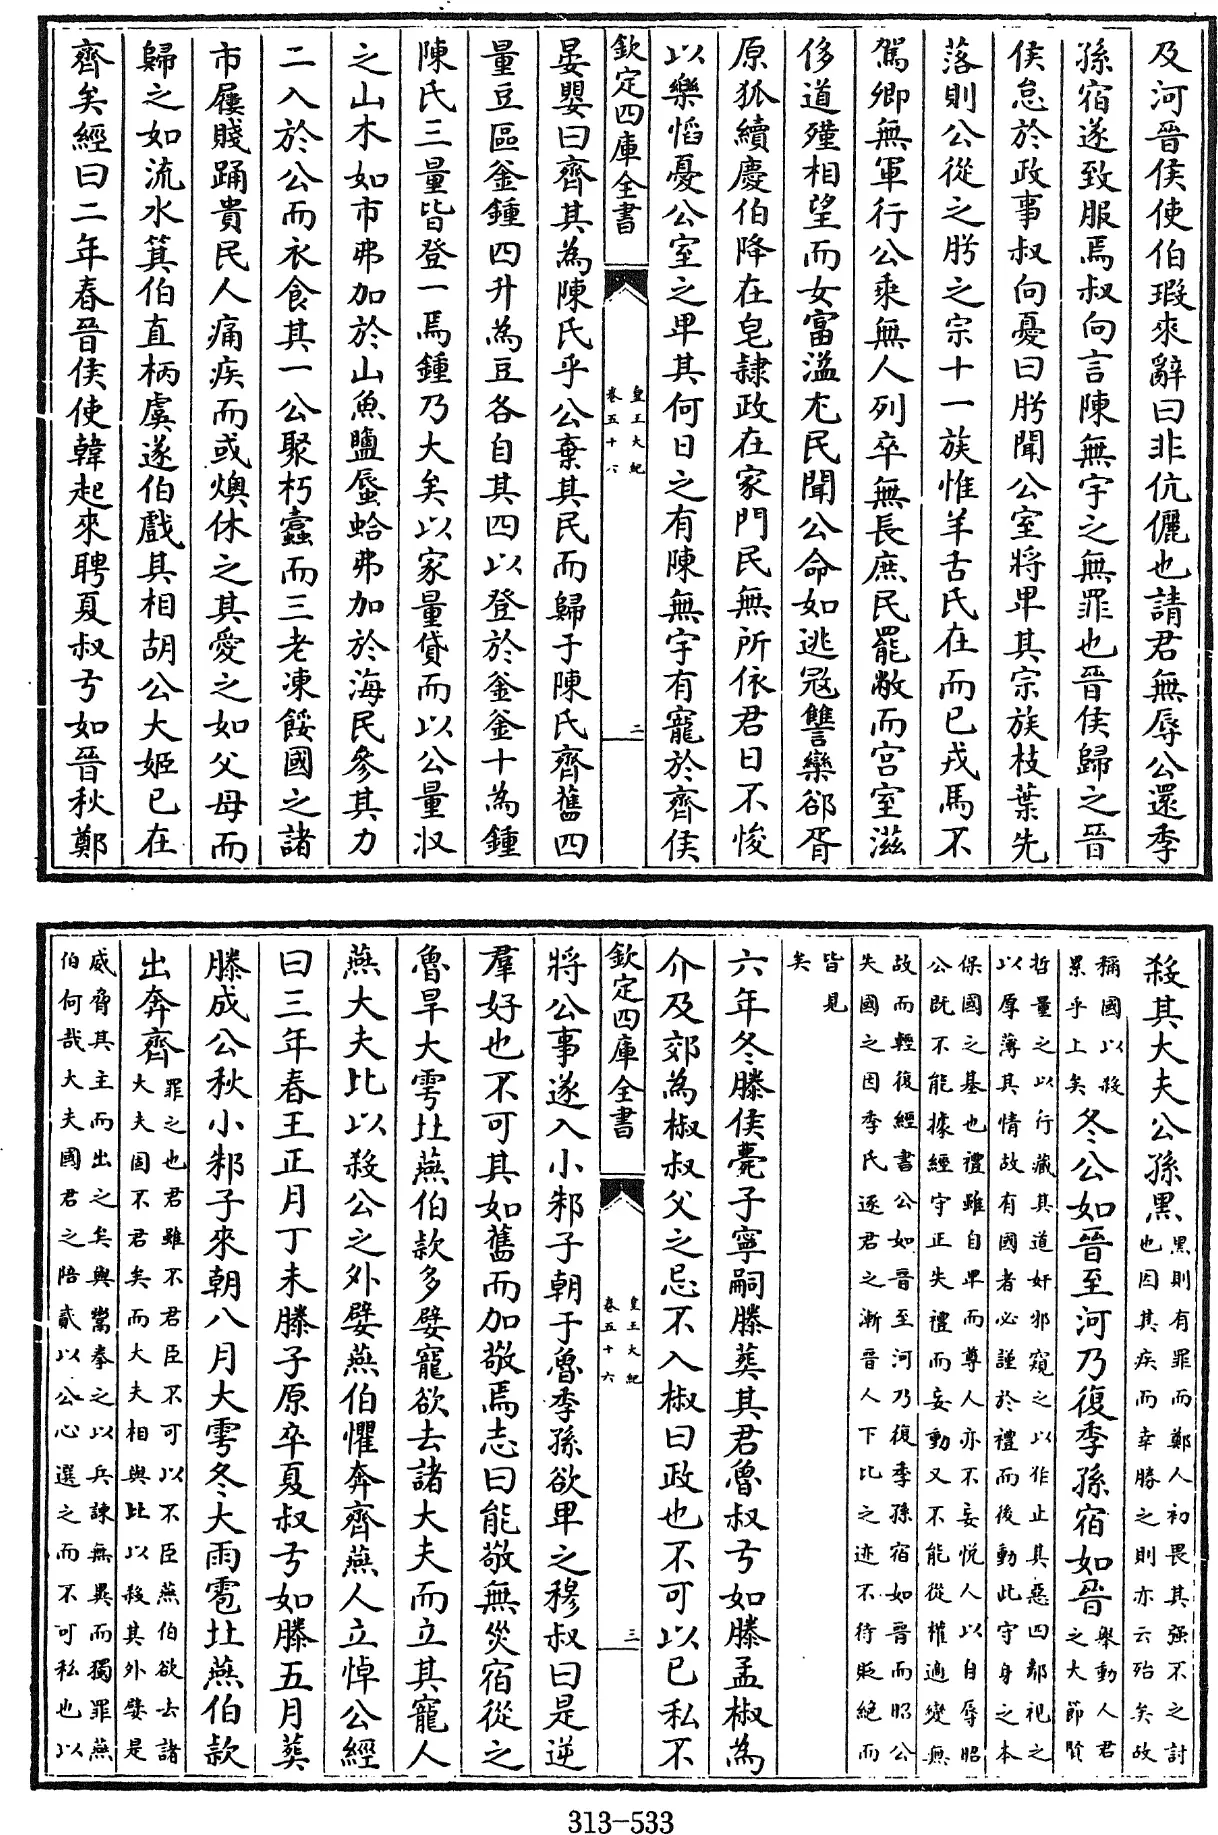 及河晉侯使伯瑕來辭曰非伉儷也請君無辱公還季
孫宿遂致服焉叔向言陳無宇之無罪也晉侯歸之晉
侯怠於政事叔向憂曰肸聞公室將卑其宗族枝葉先
落則公從之肸之宗十一族惟羊舌氏在而已戎馬不
駕卿無軍行公乘無人列卒無長庶民罷敝而宫室滋
侈道殣相望而女富溢尤民聞公命如逃寇讐欒郤胥
原狐續慶伯降在皂隷政在家門民無所依君日不悛
以樂慆憂公室之卑其何日之有陳無宇有寵於齊侯
欽定四庫全書
皇王大紀
卷五十六
二
晏嬰曰齊其為陳氏乎公棄其民而歸于陳氏齊舊四
量豆區釜鍾四升為豆各自其四以登於釜釜十為鍾
陳氏三量皆登一焉鍾乃大矣以家量貸而以公量收
之山木如市弗加於山魚鹽蜃蛤弗加於海民參其力
二入於公而衣食其一公聚朽蠧而三老凍餒國之諸
市屨賤踊貴民人痛疾而或燠休之其愛之如父母而
歸之如流水箕伯直柄虞遂伯戲其相胡公大姬已在
齊矣經曰二年春晉侯使韓起來聘夏叔弓如晉秋鄭
殺其大夫公孫黒黒則有罪而鄭人初畏其强不之討
也因其疾而幸勝之則亦云殆矣故
稱國以殺
累乎上矣冬公如晉至河乃復季孫宿如晉舉動人君
之大節賢
哲量之以行藏其道奸邪窺之以作止其惡四鄰視之
以厚薄其情故有國者必謹於禮而後動此守身之本
保國之基也禮雖自卑而尊人亦不妄悦人以自辱昭
公既不能據經守正失禮而妄動又不能從權適變無
故而輕復經書公如晉至河乃復季孫宿如晉而昭公
失國之因季氏逐君之漸晉人下比之迹不待貶絶而
皆見
矣
六年冬滕侯薨子寧嗣滕葬其君魯叔弓如滕孟椒為
介及郊為椒叔父之忌不入椒曰政也不可以已私不
欽定四庫全書
皇王大紀
卷五十六
三
將公事遂入小邾子朝于魯季孫欲卑之穆叔曰是逆
羣好也不可其如舊而加敬焉志曰能敬無災宿從之
魯旱大雩北燕伯款多嬖寵欲去諸大夫而立其寵人
燕大夫比以殺公之外嬖燕伯懼奔齊燕人立悼公經
曰三年春王正月丁未滕子原卒夏叔弓如滕五月葬
滕成公秋小邾子來朝八月大雩冬大雨雹北燕伯款
出奔齊罪之也君雖不君臣不可以不臣燕伯欲去諸
大夫固不君矣而大夫相與比以殺其外嬖是
威脅其主而出之矣與鬻拳之以兵諫無異而獨罪燕
伯何哉大夫國君之陪貳以公心選之而不可私也以
313-533